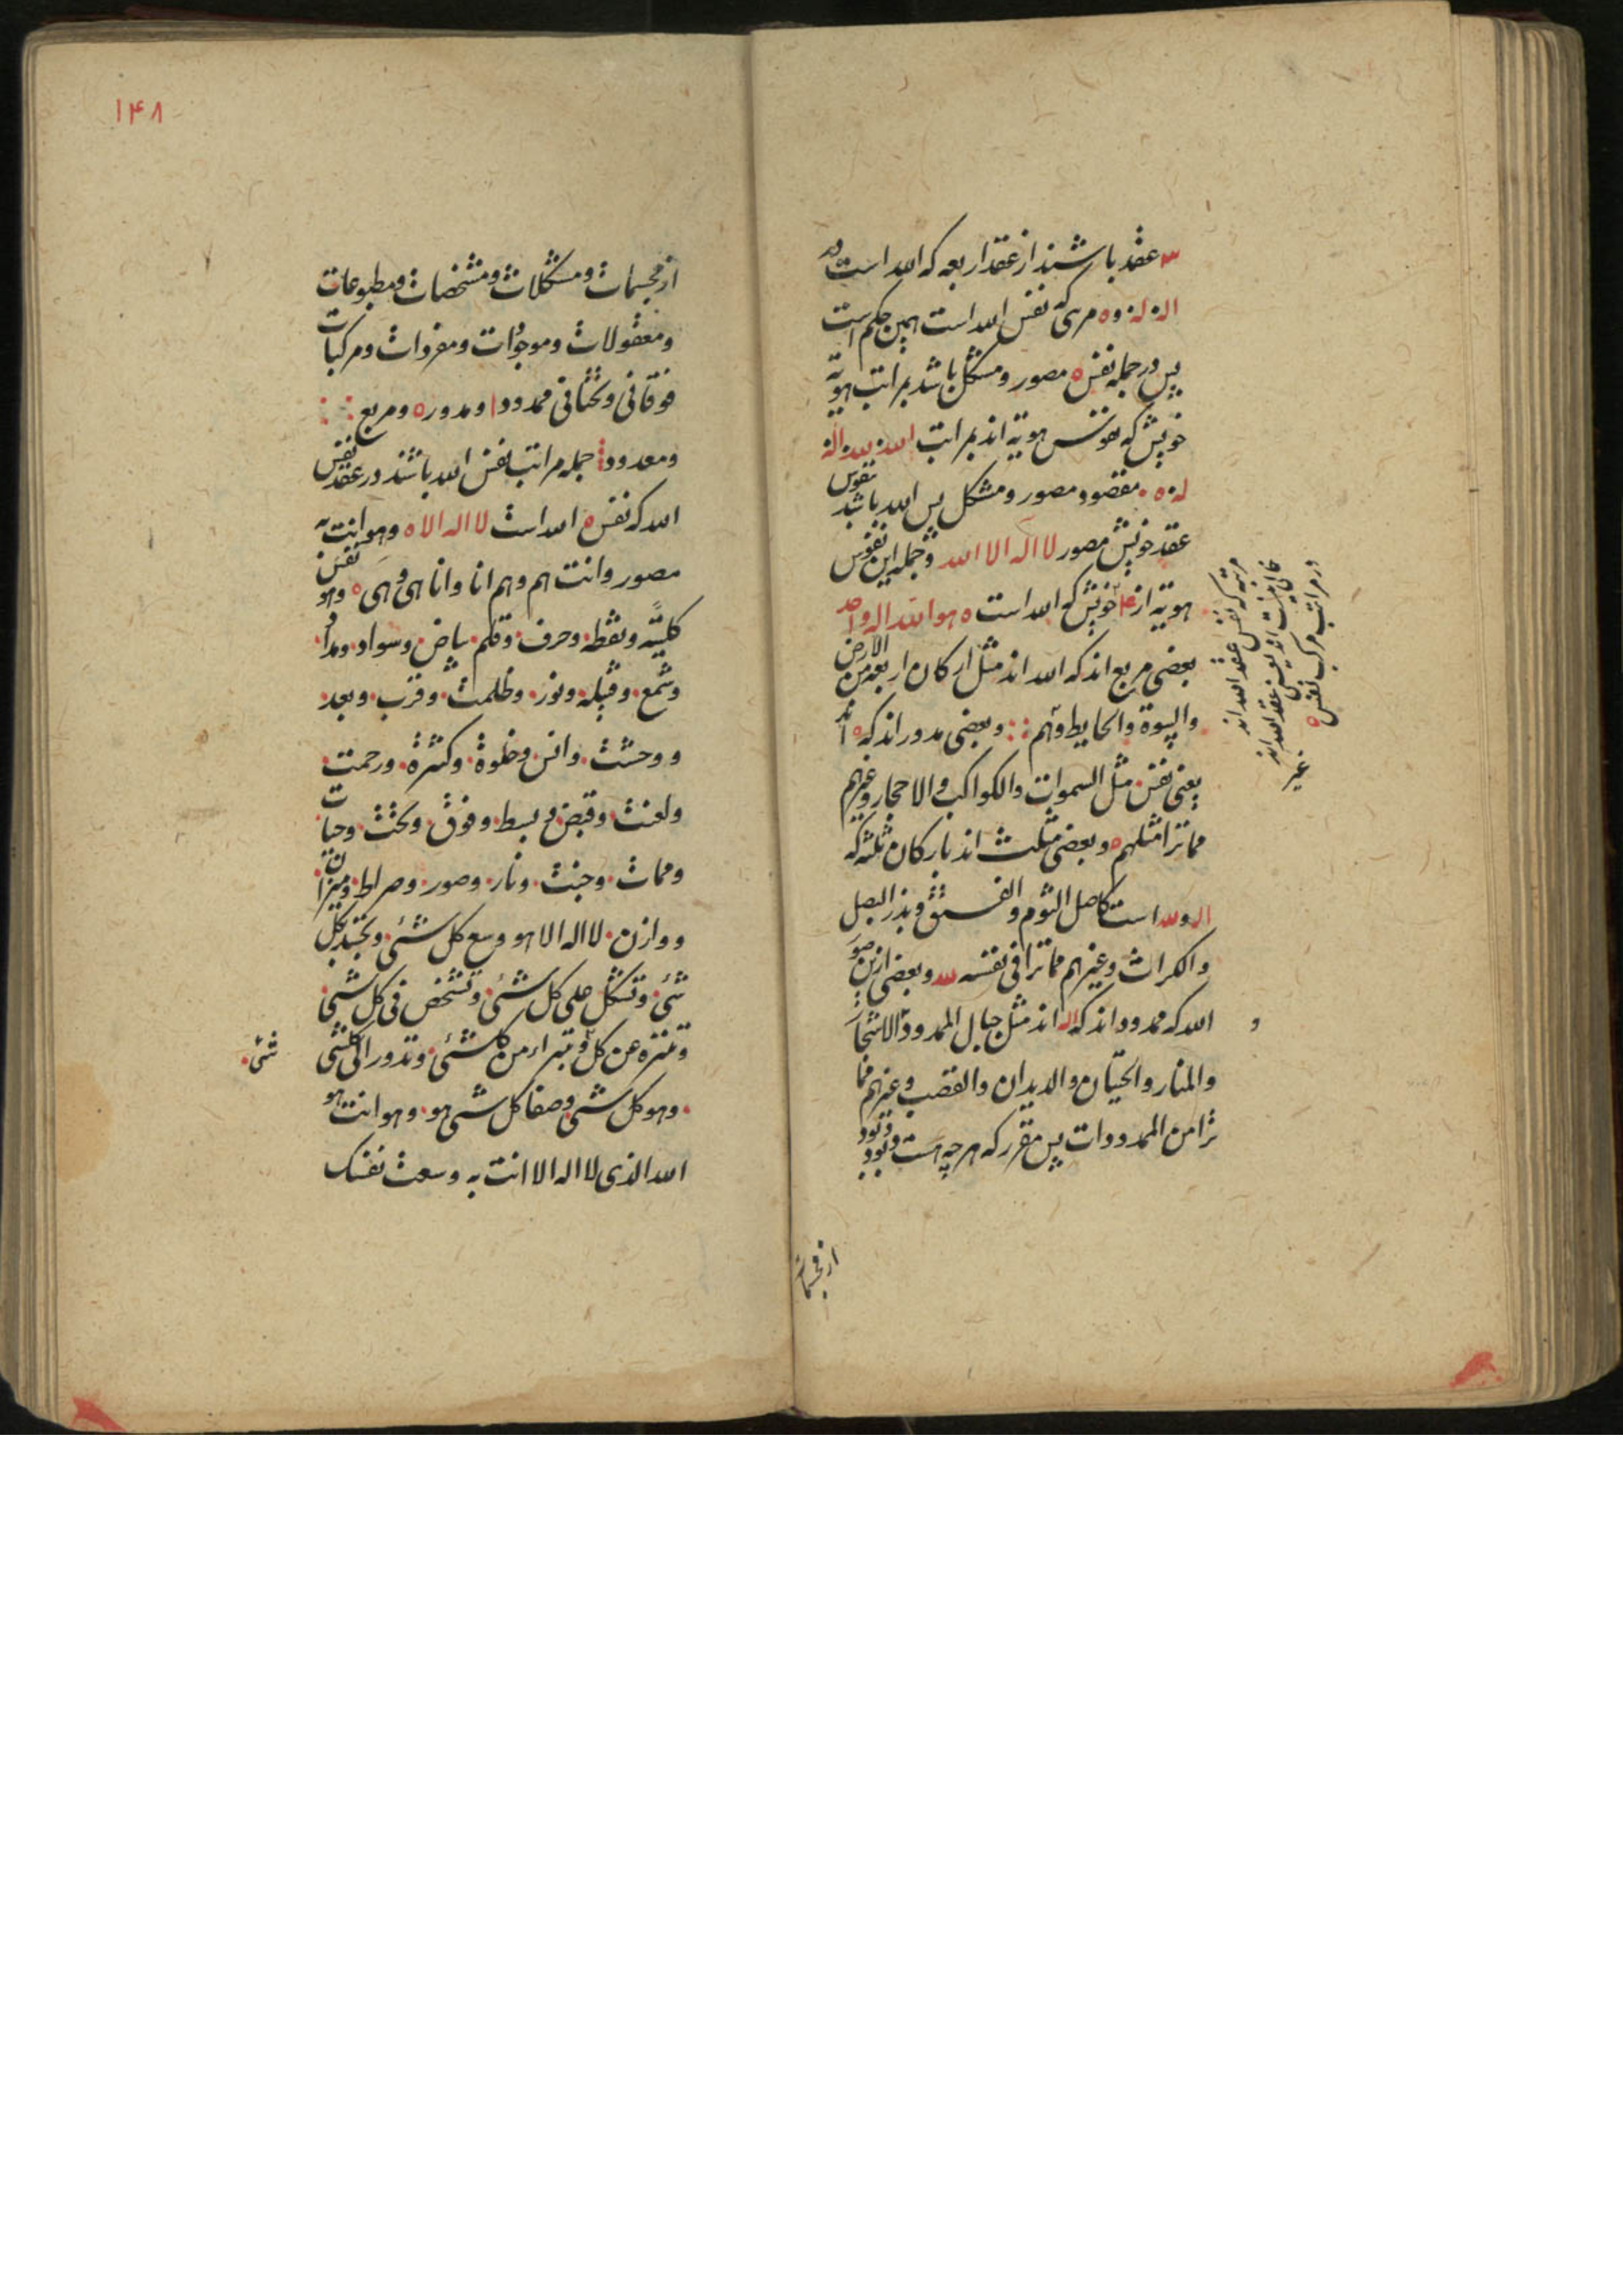 عقد باشند از عقد اربعه که الله است
اله له وه مربی که نفس الله است همین حکم است
پس در جمله نفس ه مصور و مشکل باشد بمراتب هویة
خویش که نفوس هویة اند بمراتب الله لله اله
له ه مقصود مصور و مشکل پس الله باشد نفوس
عقد خویش مصور لا اله الا الله و جمله این نفوس
هویة از خویش که الله است ه هو الله اله واحد
بعضی مربع اند که الله اند مثل ارکان اربعه من الارض
والبیوة والحایط وهم و بعضی مدور اند که ه اند
یعنی نفس مثل السموات والکواکب والاحجار وغیرهم
مما ترا مثلهم ه و بعضی مثلث اند بارکان ثلثه که
اله ولله است کاصل الثوم والفستق وبذر البصل
والکراث وغیرهم مما ترا فی نفسه لله و بعضی ازین صور
الله که ممدود اند که اله اند مثل جبال الممدود الاشجار
والمنار والحیتان والدیدان والقصب وغیرهم مما
ترا من الممدودات پس مقرر که هرچه هست وبود
مرتبه که نفس عقد الله اند
در مراتب مرکب نفس ه
غیر
و
۱۴۸
از مجسمات ومشکلات ومشخصات ومطبوعات
ومعقولات وموجودات ومفردات ومرکبات
فوقانی وتحتانی ممدود ا ومدور ه ومربع
ومعدود جمله مراتب نفس الله باشند در عقد نفس
الله که نفس ه الله است لا اله الا ه وهو انت به
مصور وانت هم وهم انا وانا هی وهی ه وهو نفس
کلیة ونقطه وحرف وقلم بیاض وسواد ومداد
وشمع وقبله ونور وظلمت وقرب وبعد
ووحشت وانس وخلوة وکثرة ورحمت
ولعنت وقبض وبسط وفوق وتحت وحیات
وممات وجنت ونار وصور وصراط ومیزان
ووازن لا اله الا هو وسع کل شئی وتجسد بکل
شئی وتشکل علی کل شئی وتشخص فی کل شئی
وتنزه عن کل وتبراء من کلشئی وتدور الی کلشی
شئی
وهو کل شئی وصفا کل شی هو وهو انت هو
الله الذی لا اله الا انت به وسعت نفسک